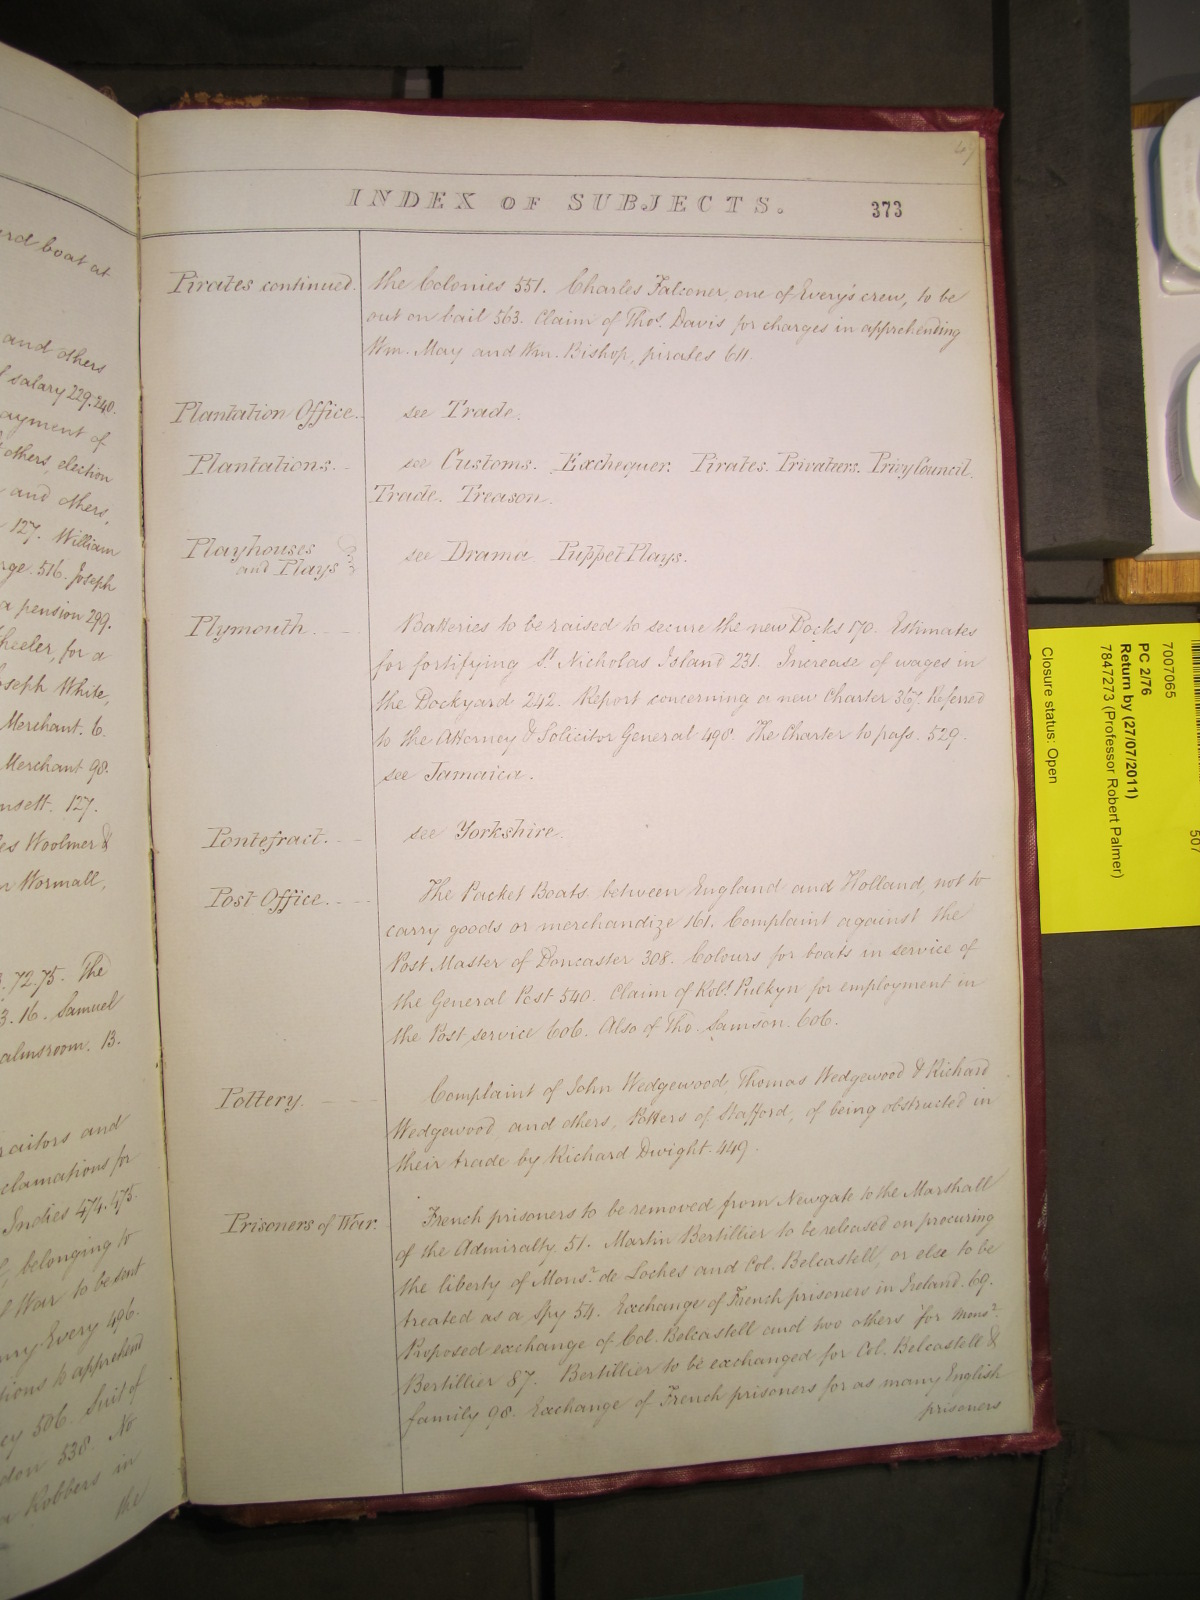 rd boat at
and others
salary 229.240.
ayment of
others, election
and others,
127. William
rge. 516. Joseph
a pension 299.
heeler, for a
oseph White,
Merchant. 6.
Merchant 98.
nsett. 127.
es Woolmer &
n Wormall,
3.72.75. The
3.16. Samuel
almsroom. 13.
raitors and
clamations for
Indies 474.475.
belonging to
War to be sent
Every 496.
tions to apprehend
506. Suit of
don 538. No
Robbers in
the
47
INDEX OF SUBJECTS. 373
Pirates continued. the Colonies 551. Charles Falconer, one of Every's crew, to be
out on bail 563. Claim of Thos. Davis for charges in apprehending
Wm. May and Wm. Bishop, pirates 611.
Plantation Office. see Trade.
Plantations. see Customs. Exchequer. Pirates. Privateers. Privy Council.
Trade. Treason.
Playhouses
and Plays see Drama Puppet Plays.
Plymouth. Batteries to be raised to secure the new Docks 170. Estimates
for fortifying St. Nicholas Island 231. Increase of wages in
the Dockyard 242. Report concerning a new Charter 367. Referred
to the Attorney & Solicitor General 498. The Charter to pass. 529.
see Jamaica.
Pontefract. see Yorkshire.
Post Office. The Packet Boats between England and Holland, not to
carry goods or merchandize 161. Complaint against the
Post Master of Doncaster 308. Colours for boats in service of
the General Post 540. Claim of Robt. Pulkyn for employment in
the Post service 606. Also of Tho. Samson. 606.
Pottery. Complaint of John Wedgewood, Thomas Wedgewood & Richard
Wedgewood, and others, Potters of Stafford, of being obstructed in
their trade by Richard Dwight. 449.
Prisoners of War. French prisoners to be removed from Newgate to the Marshall
of the Admiralty, 51. Martin Bertillier to be released on procuring
the liberty of Monsr. de Loches and Col. Belcastell, or else to be
treated as a spy 54. Exchange of French prisoners in Ireland. 69.
Proposed exchange of Col. Belcastell and two others for Monsr.
Bertillier 87. Bertillier to be exchanged for Col. Belcastell &
family 98. Exchange of French prisoners for as many English
prisoners
7007065
PC 2/76
Return by (27/07/2011)
7847273 (Professor Robert Palmer)
Closure status: Open
507